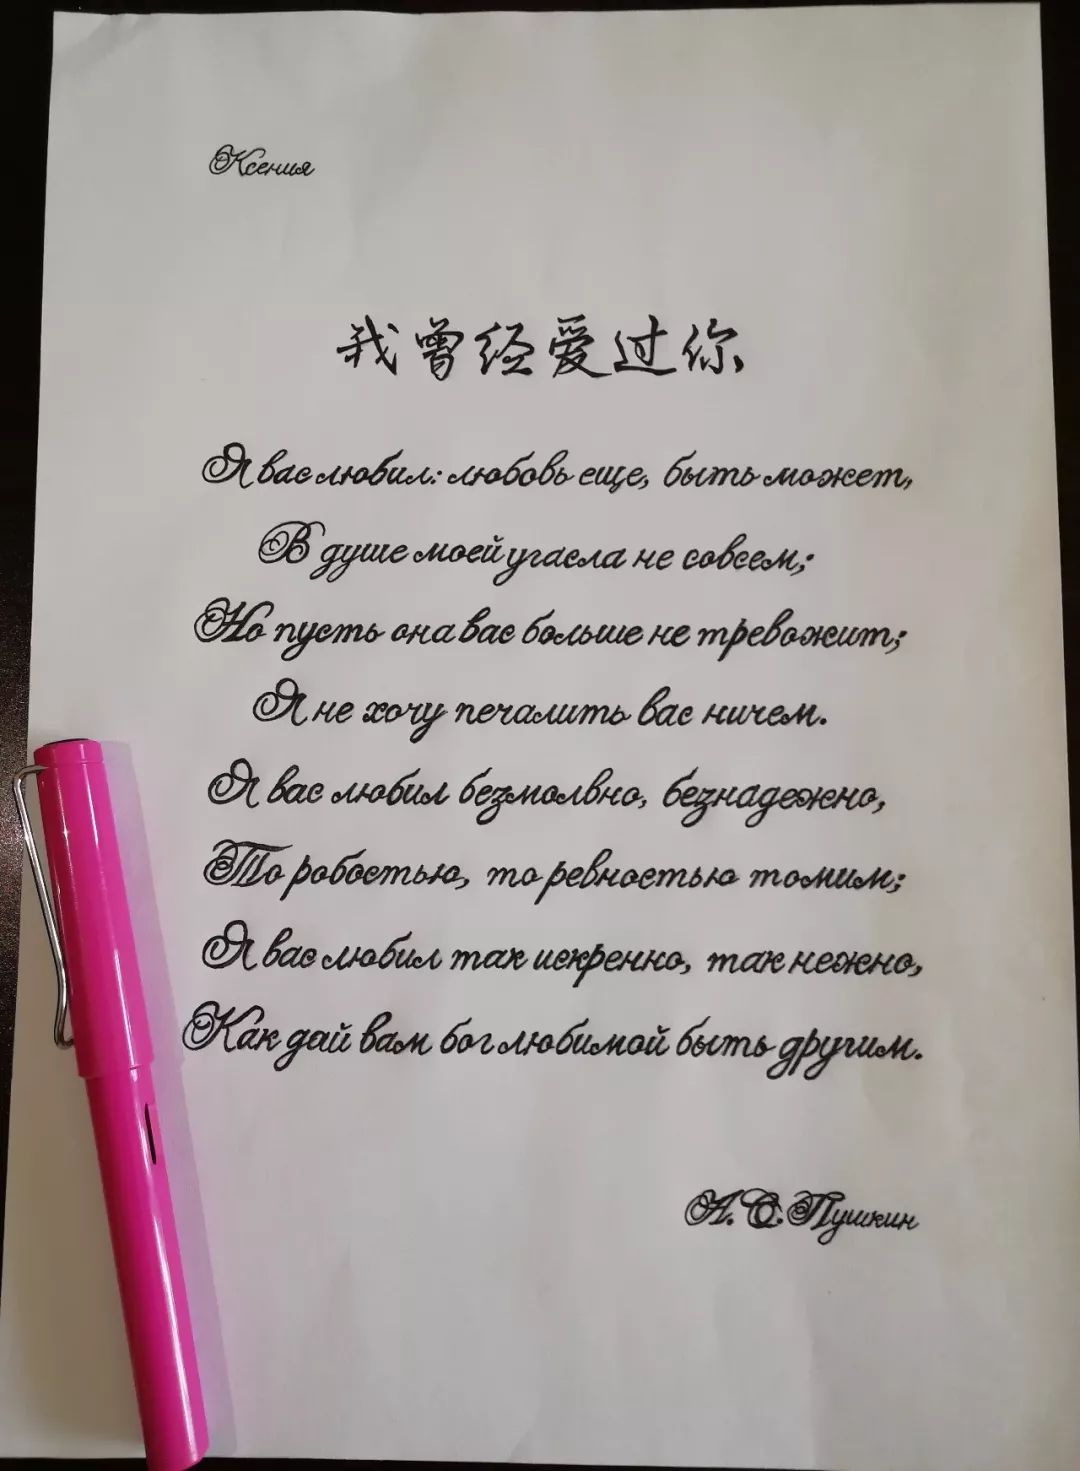 Ксения
我曾经爱过你
Я вас любил: любовь еще, быть может,
В душе моей угасла не совсем;
Но пусть она вас больше не тревожит;
Я не хочу печалить вас ничем.
Я вас любил безмолвно, безнадежно,
То робостью, то ревностью томим;
Я вас любил так искренно, так нежно,
Как дай вам бог любимой быть другим.
А. С. Пушкин